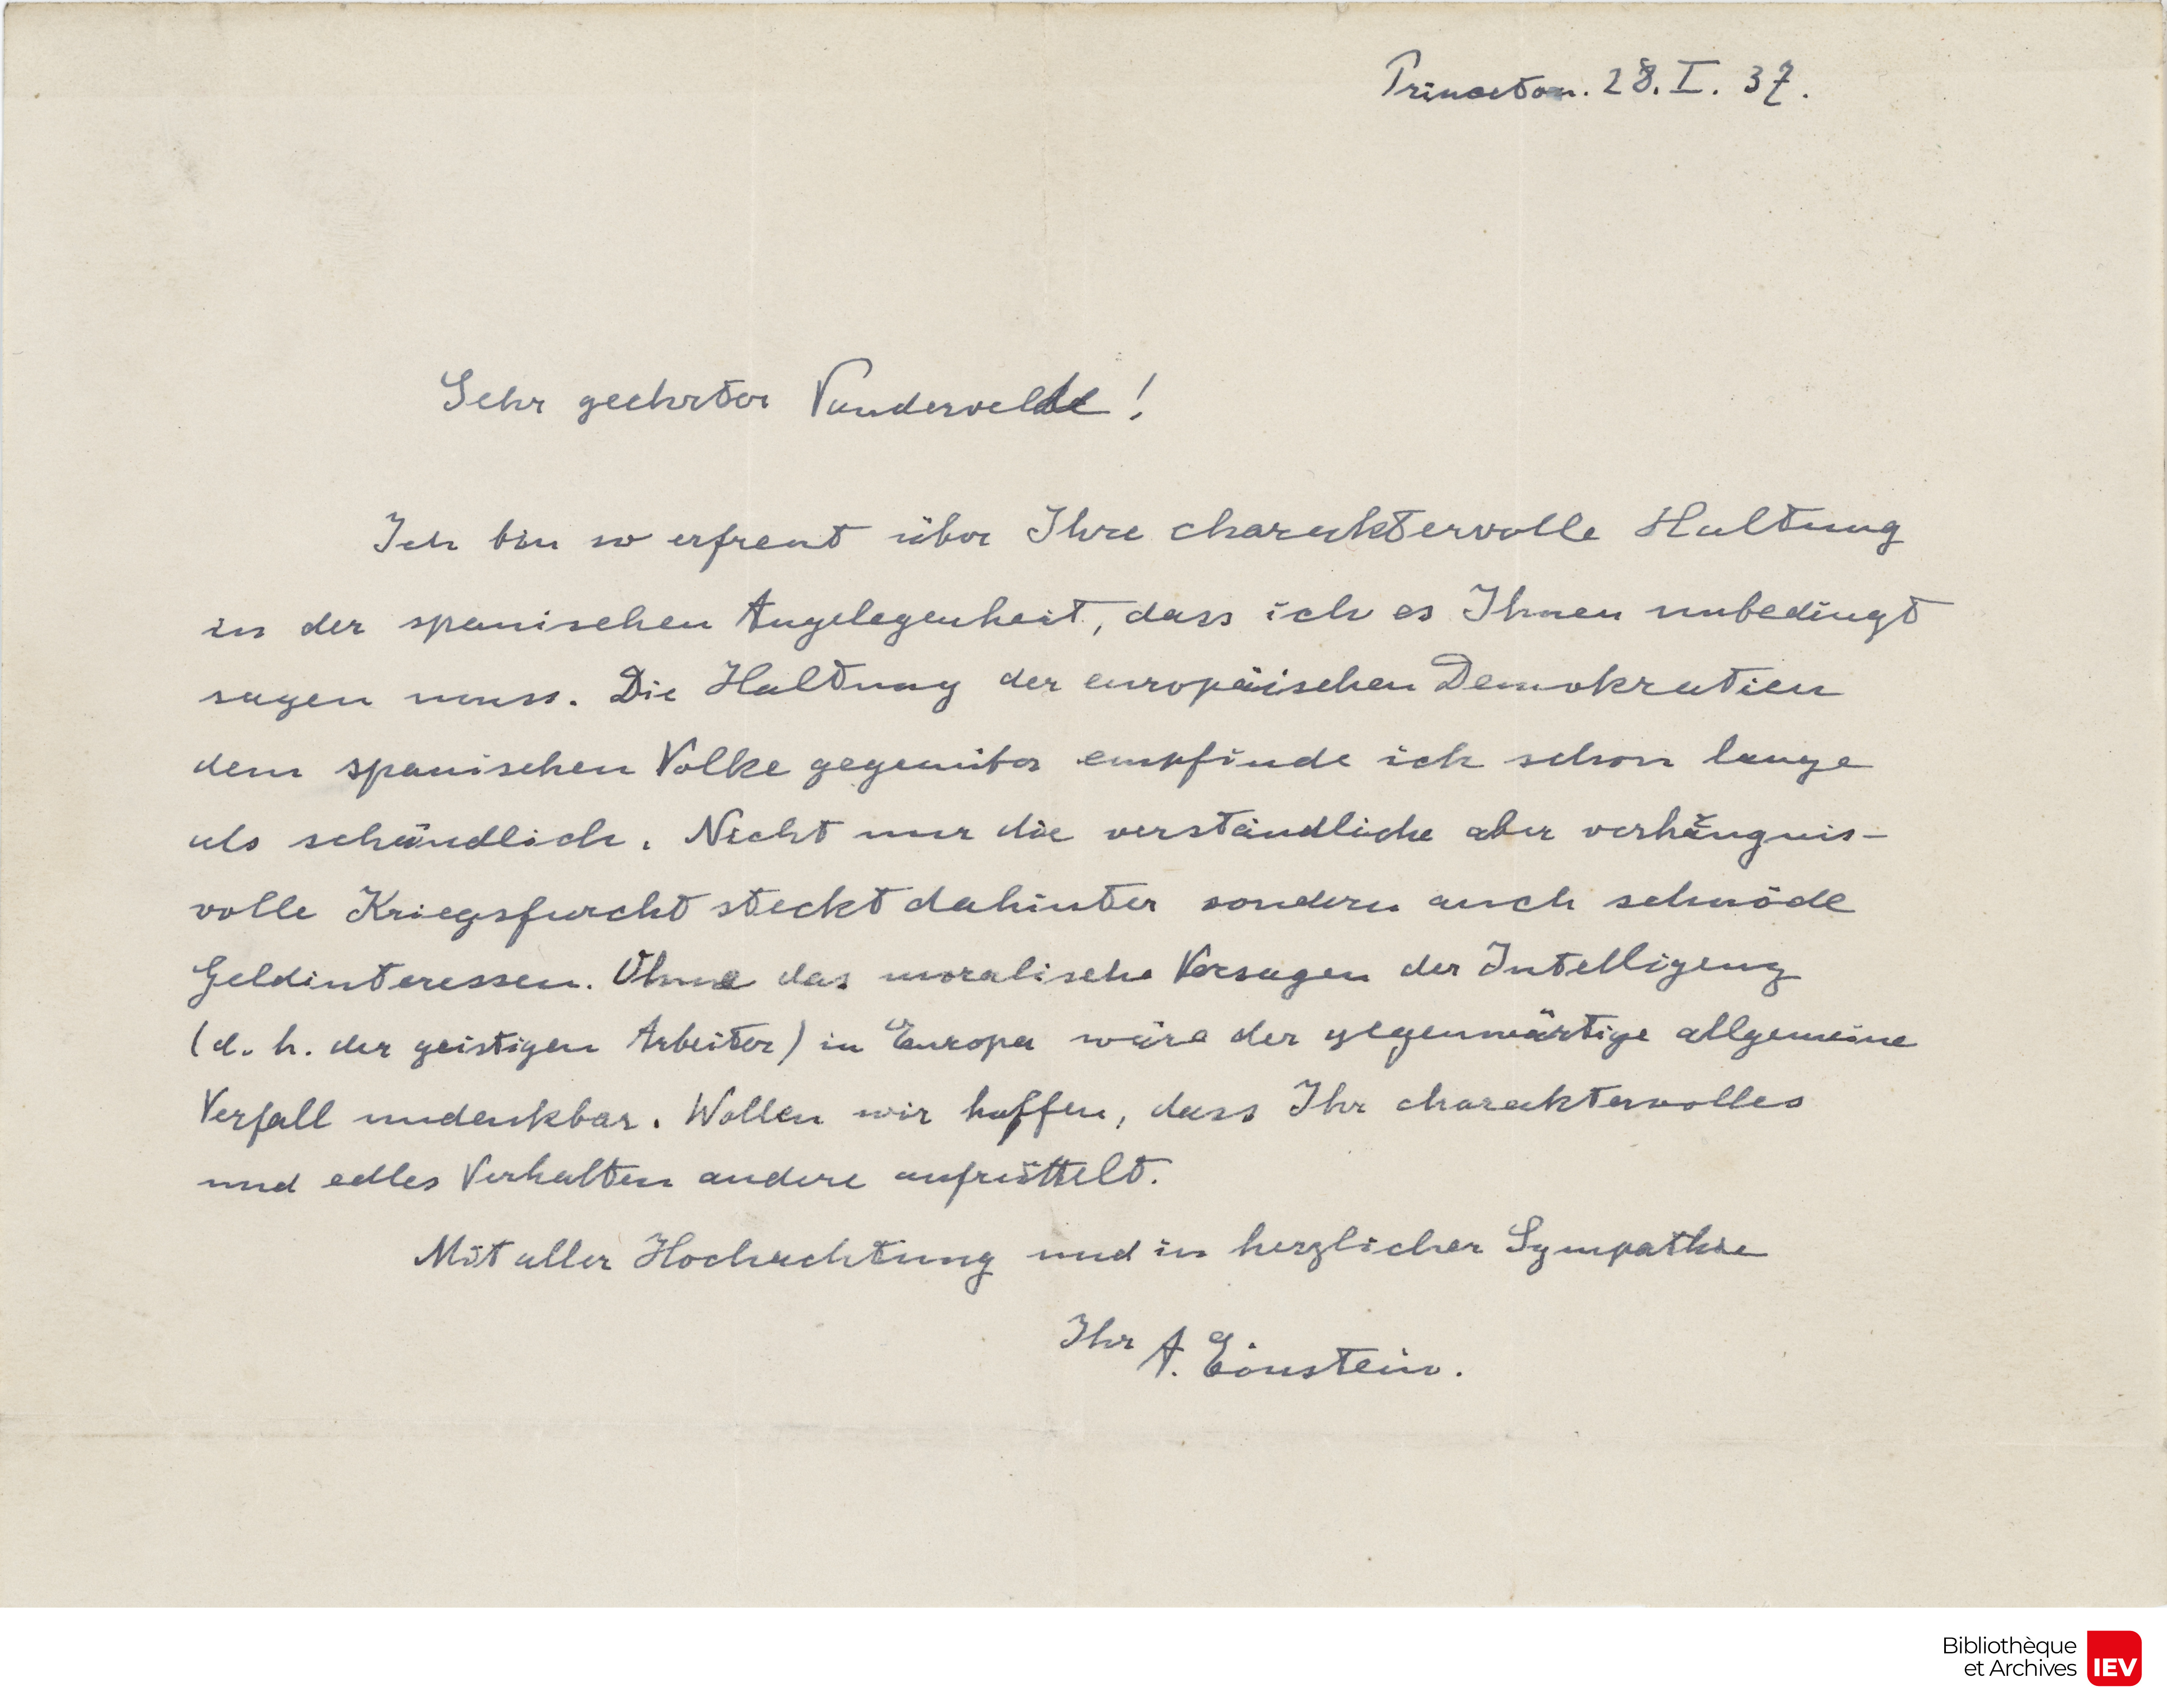 Princeton. 28. I. 37.
Sehr geehrter Vandervelde!
Ich bin so erfreut über Ihre charaktervolle Haltung
in der spanischen Angelegenheit, dass ich es Ihnen unbedingt
sagen muss. Die Haltung der europäischen Demokratien
dem spanischen Volke gegenüber empfinde ich schon lange
als schändlich. Nicht nur die verständliche aber verhängnis-
volle Kriegsfurcht steckt dahinter sondern auch schnöde
Geldinteressen. Ohne das moralische Versagen der Intelligenz
(d. h. der geistigen Arbeiter) in Europa wäre der gegenwärtige allgemeine
Verfall undenkbar. Wollen wir hoffen, dass Ihr charaktervolles
und edles Verhalten andere aufrüttelt.
Mit aller Hochachtung und in herzlicher Sympathie
Ihr A. Einstein.
Bibliothèque
et Archives IEV